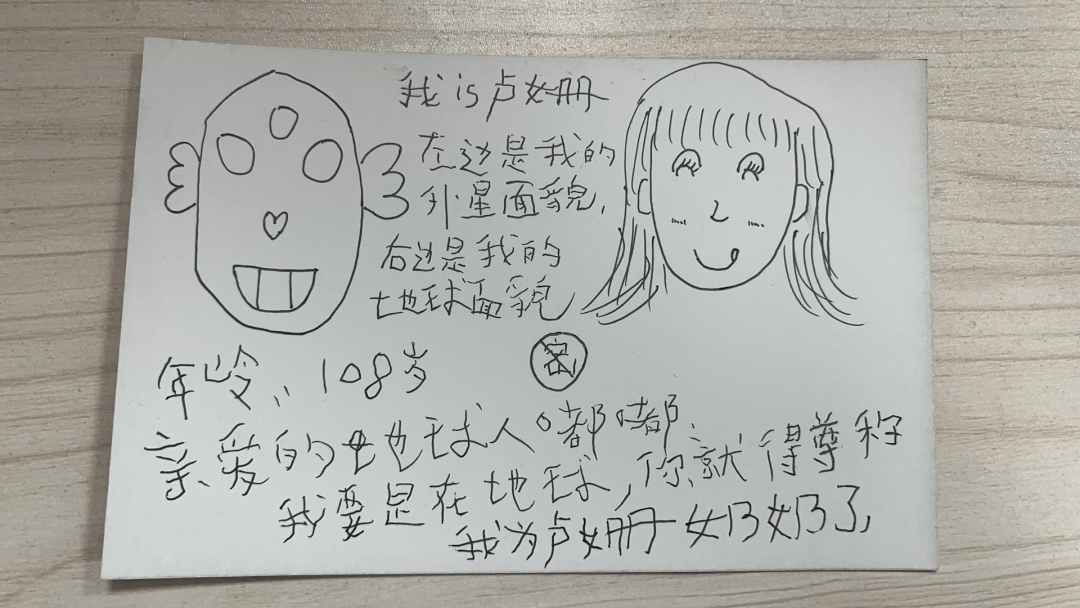 我is卢姗
左边是我的
外星面貌,
右边是我的
地球面貌
密
年岭:108岁
亲爱的地球人嘟嘟、
我要是在地球,你就得尊称
我为卢姗奶奶了,